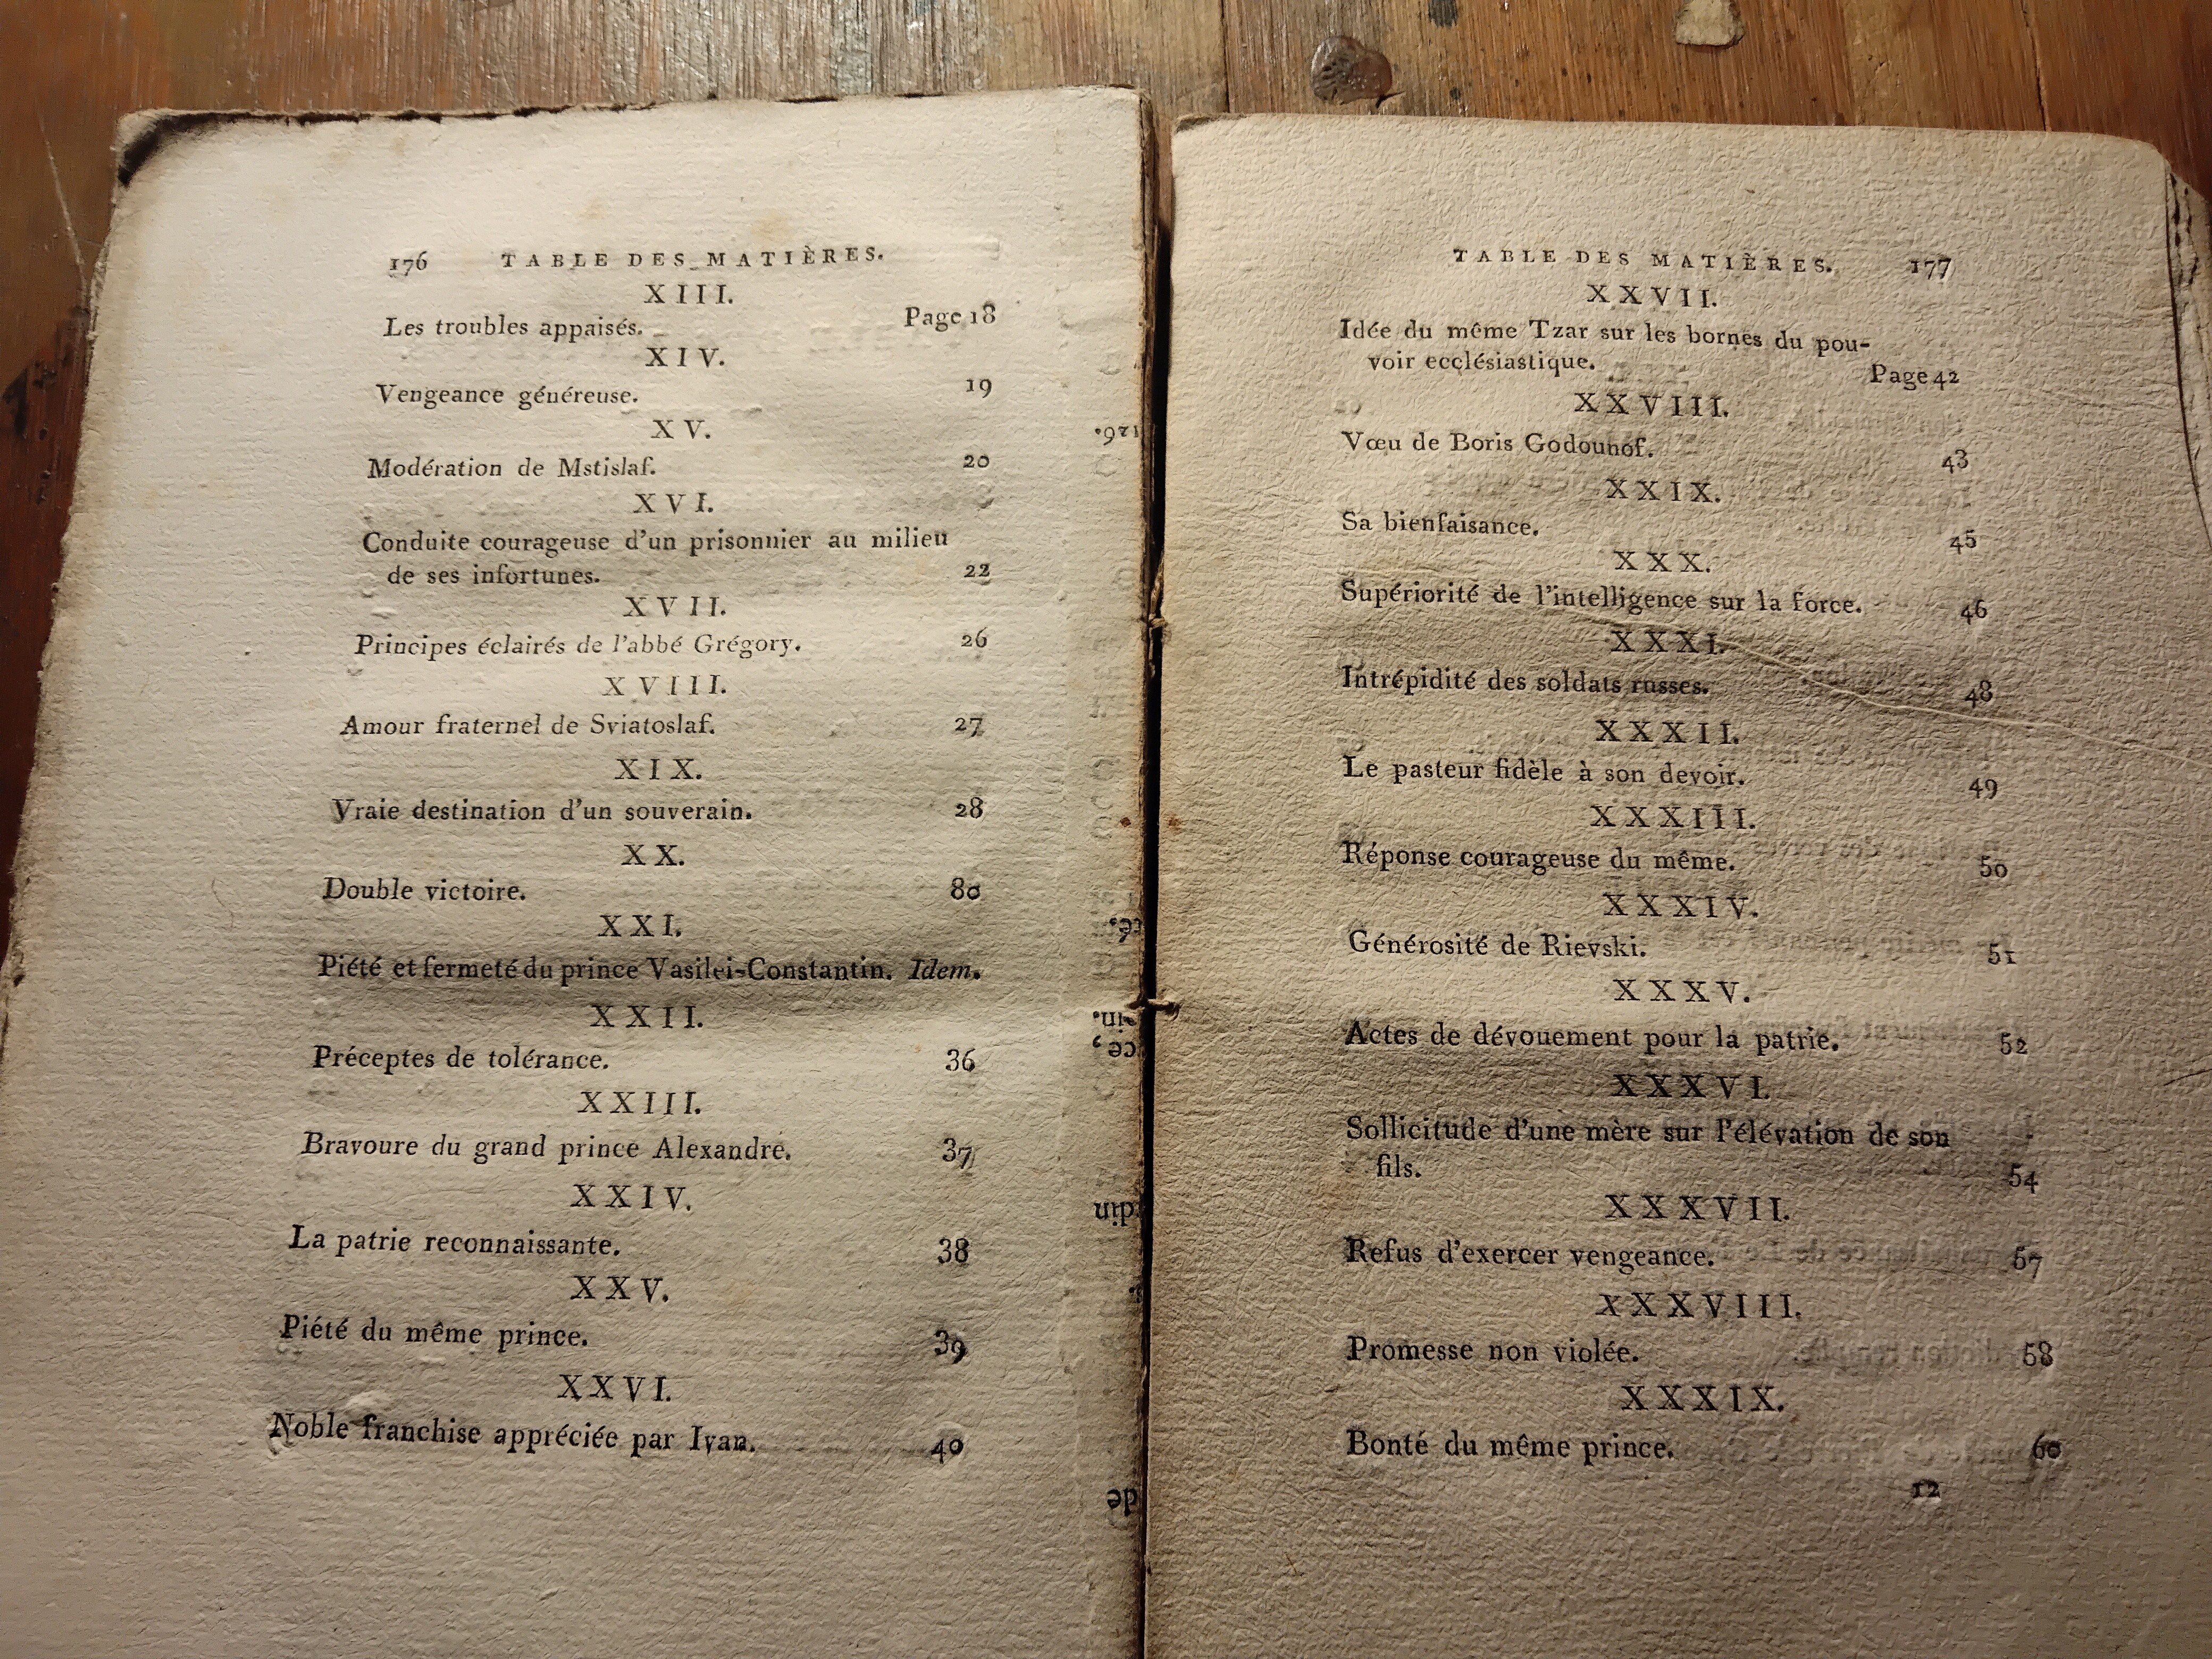 176 TABLE DES MATIÈRES.
XIII.
Les troubles appaisés. Page 18
XIV.
Vengeance généreuse. 19
XV.
Modération de Mstislaf. 20
XVI.
Conduite courageuse d'un prisonnier au milieu
de ses infortunes. 22
XVII.
Principes éclairés de l'abbé Grégory. 26
XVIII.
Amour fraternel de Sviatoslaf. 27
XIX.
Vraie destination d'un souverain. 28
XX.
Double victoire. 80
XXI.
Piété et fermeté du prince Vasilei-Constantin. Idem.
XXII.
Préceptes de tolérance. 36
XXIII.
Bravoure du grand prince Alexandre. 37
XXIV.
La patrie reconnaissante. 38
XXV.
Piété du même prince. 39
XXVI.
Noble franchise appréciée par Ivan. 40
126.
té,
in.
ce,
din
de
TABLE DES MATIÈRES. 177
XXVII.
Idée du même Tzar sur les bornes du pou-
voir ecclésiastique. Page 42
XXVIII.
Vœu de Boris Godounof. 43
XXIX.
Sa bienfaisance. 45
XXX.
Supériorité de l'intelligence sur la force. 46
XXXI.
Intrépidité des soldats russes. 48
XXXII.
Le pasteur fidèle à son devoir. 49
XXXIII.
Réponse courageuse du même. 50
XXXIV.
Générosité de Rievski. 51
XXXV.
Actes de dévouement pour la patrie. 52
XXXVI.
Sollicitude d'une mère sur l'élévation de son
fils. 54
XXXVII.
Refus d'exercer vengeance. 57
XXXVIII.
Promesse non violée. 58
XXXIX.
Bonté du même prince. 60
12